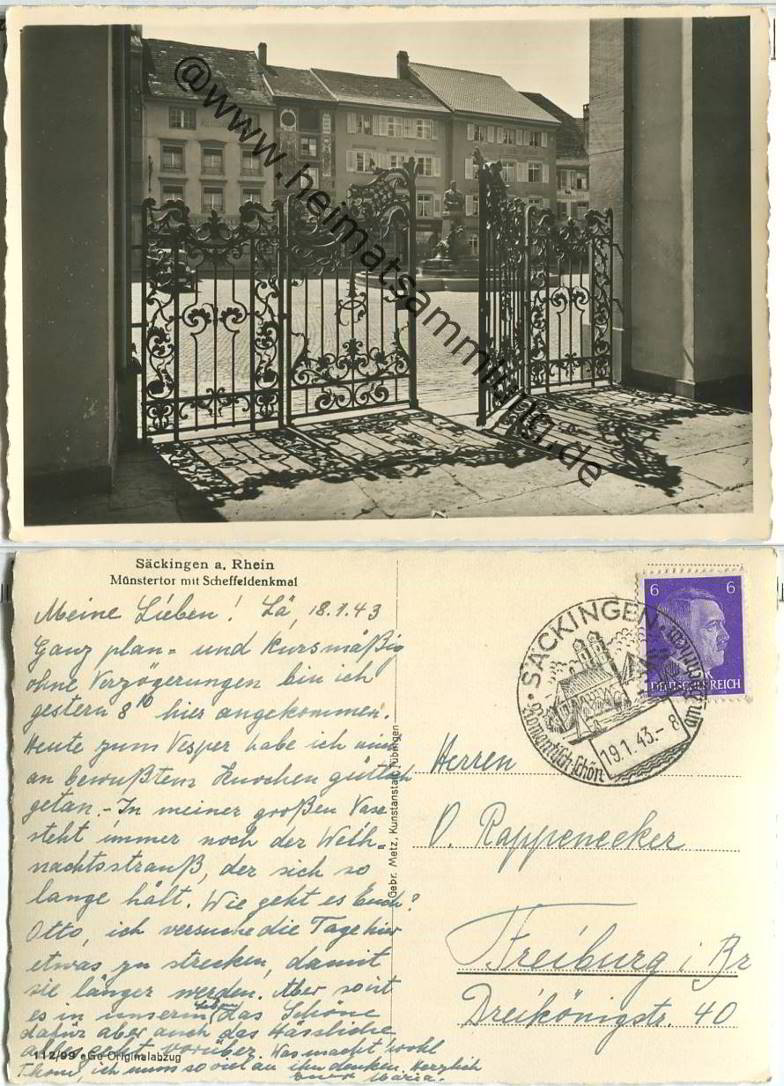 @www.heimatsammlung.de
Säckingen a. Rhein
Münstertor mit Scheffeldenkmal
Meine Lieben! Sä, 18.1.43
Ganz plan- und kursmäßig
ohne Verzögerungen bin ich
gestern 8¹⁰ hier angekommen.
Heute zum Vesper habe ich mich
an bewußtem Knochen gütlich
getan.- In meiner großen Vase
steht immer noch der Weih
nachtsstrauß, der sich so
lange hält. Wie geht es Euch?
Otto, ich versuche die Tage hier
etwas zu strecken, damit
sie länger werden. Aber so ist
es in unserm Leben das Schöne
dafür aber auch das Hässliche
alles geht vorüber. Was macht wohl
ich muss so viel an ihn denken. Herzlich
Eure Maria.
112/99 eGe Originalabzug
Gebr. Metz, Kunstanstalt, Tübingen
SÄCKINGEN
Romantisch schön
am Hochrhein
19.1.43.- 8
6 6
DEUTSCHES REICH
Herren
O. Rappenecker
Freiburg i Br
Dreikönigstr. 40